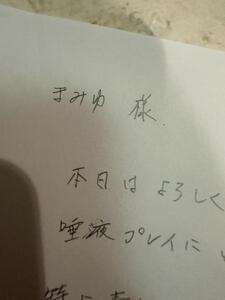 まみゆ 様
本日はよろしく
唾液プレイに
特に